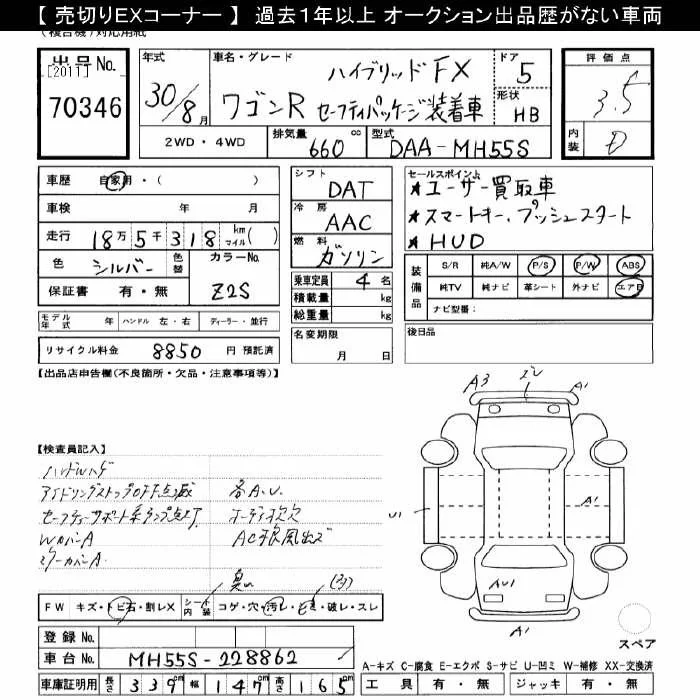 【 売切りEXコーナー 】 過去1年以上 オークション出品歴がない車両
(複合機)対応用紙
出品No.
[2011]
70346
年式
30/8月
車名・グレード
ハイブリッドFX
ワゴンR セーフティパッケージ装着車
ドア
5
形状
HB
評価点
3.5
内装
D
2WD・4WD
排気量
660 cc
型式
DAA-MH55S
車歴 自家用・( )
車検 年 月
走行 18万5千318 km マイル( )
色 シルバー 色替
カラーNo.
Z2S
保証書 有・無
シフト
DAT
冷房
AAC
燃料
ガソリン
乗車定員 4 名
積載量 kg
総重量 kg
名変期限
月 日
セールスポイント
★ユーザー買取車
★スマートキー、プッシュスタート
★HUD
装備品
S/R 純A/W P/S P/W ABS
純TV 純ナビ 革シート 外ナビ エアB
ナビ型番:
後日品
モデル年式 年 ハンドル 左・右 ディーラー・並行
リサイクル料金 8850 円 預託済
【出品店申告欄(不良箇所・欠品・注意事項等)】
【検査員記入】
ハンドルハゲ
アイドリングストップOFF点滅 各A.U.
セーフティーサポート系ランプ点灯 オーディオ欠
WカバーA AC冷風出ズ
ミラーカバーA
臭い
FW キズ・トビ石・割レX
シート内装 コゲ・穴・汚レ・ヒビ・破レ・スレ
登録No.
車台No. MH55S-228862
車庫証明用 長さ 339cm 幅 147cm 高さ 165cm
A3
A1
U1
A1
AU1
A1
スペア
A-キズ C-腐食 E-エクボ S-サビ U-凹ミ W-補修 XX-交換済
工具 有・無 ジャッキ 有・無